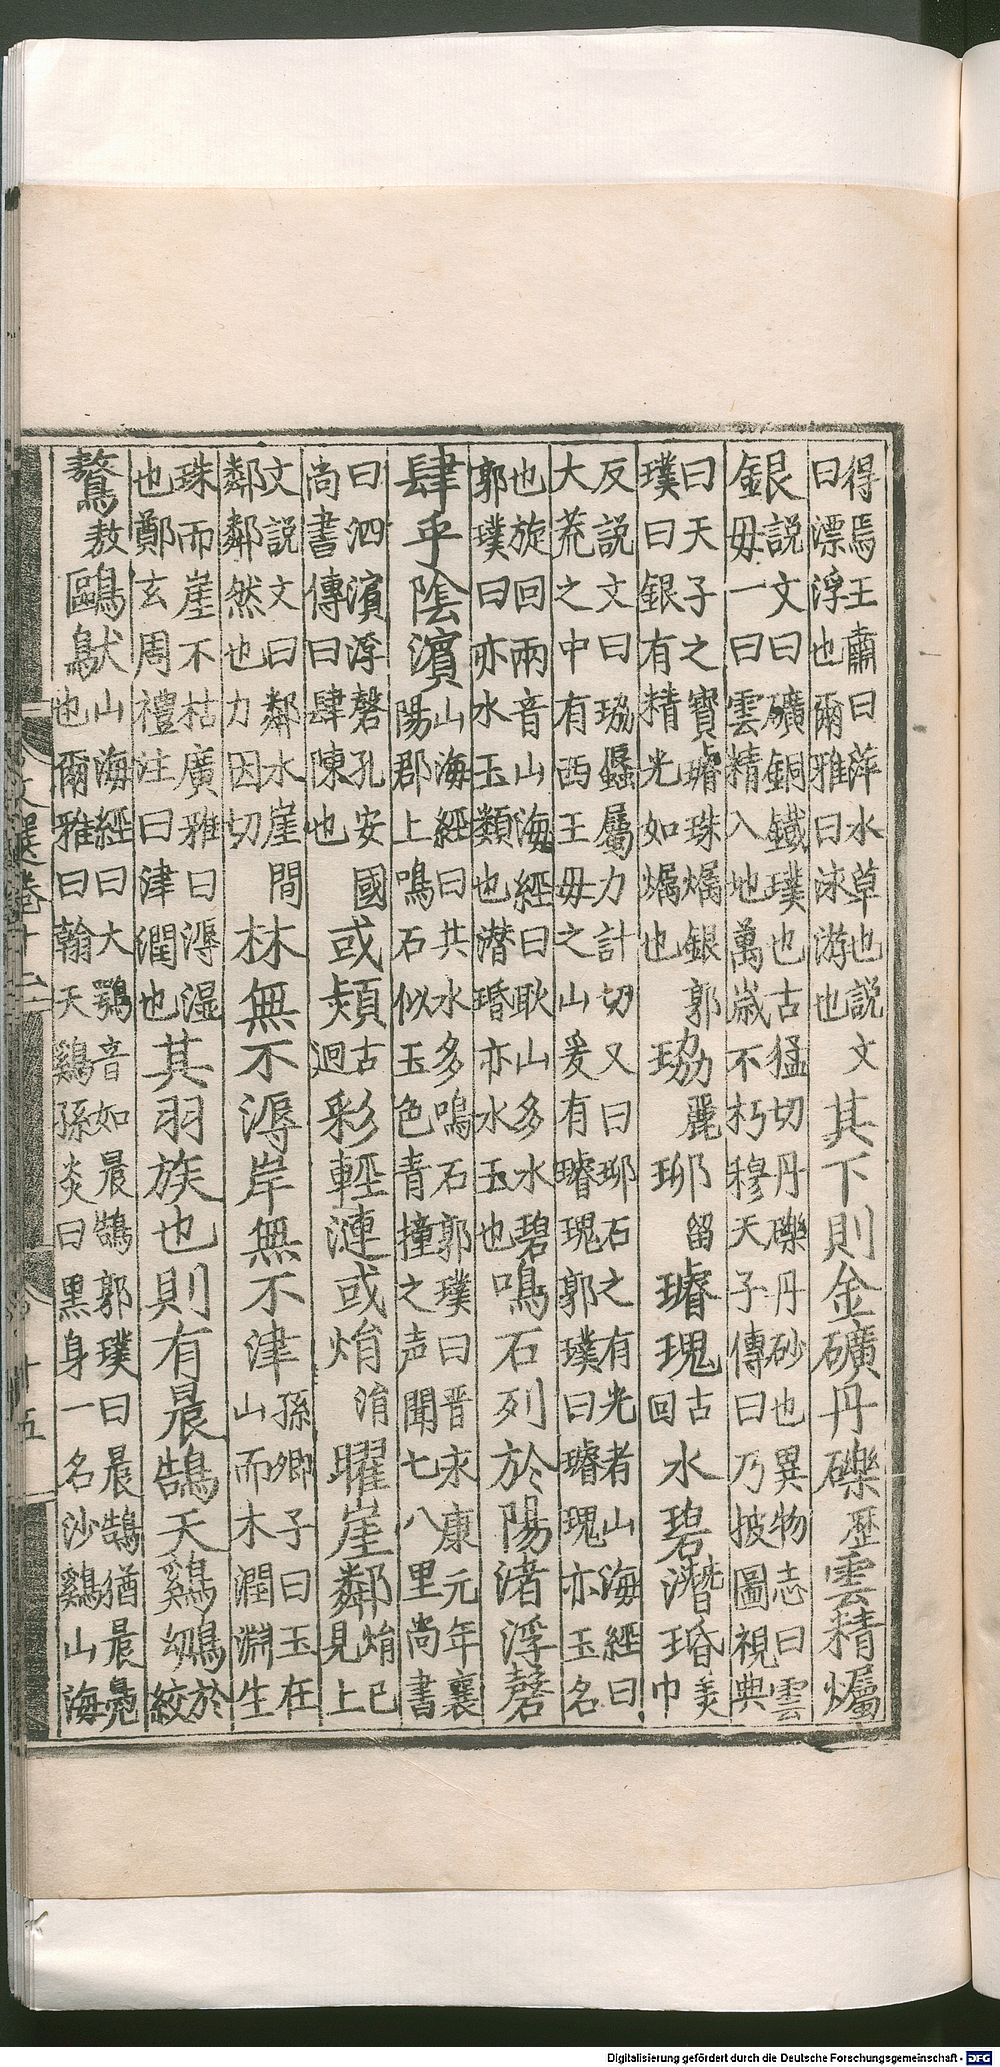 得焉王肅曰萍水草也説文曰漂浮也爾雅曰泳游也其下則金礦丹礫歷雲精爥
銀説文曰礦銅鐵璞也古猛切丹礫丹砂也異物志曰雲母一曰雲精入地萬歲不朽穆天子傳曰乃披圖視典
曰天子之寶璿珠爥銀郭璞曰銀有精光如爥也珕麗珋留璿瑰古回水碧潛㻉美巾
反説文曰珕蜃屬力計切又曰珋石之有光者山海經曰大荒之中有西王母之山爰有璿瑰郭璞曰璿瑰亦玉名
也旋回兩音山海經曰耿山多水碧郭璞曰亦水玉類也潛㻉亦水玉也鳴石列於陽渚浮磬
肆乎陰濱山海經曰共水多鳴石郭璞曰晋永康元年襄陽郡上鳴石似玉色青撞之声聞七八里尚書
曰泗濱浮磬孔安國尚書傳曰肆陳也或熲古迴彩輕漣或焆涓曜崖鄰焆已見上
文説文曰鄰水崖間鄰鄰然也力因切林無不溽岸無不津孫卿子曰玉在山而木潤淵生
珠而崖不枯廣雅曰溽湿也鄭玄周禮注曰津潤也其羽族也則有晨鵠天鷄䳃於絞
鷔敖鷗䳚山海經曰大鶚音如晨鵠郭璞曰晨鵠猶晨鳧也爾雅曰翰天鷄孫炎曰黑身一名沙鷄山海
文選卷十二
十五
Digitalisierung gefördert durch die Deutsche Forschungsgemeinschaft - DFG